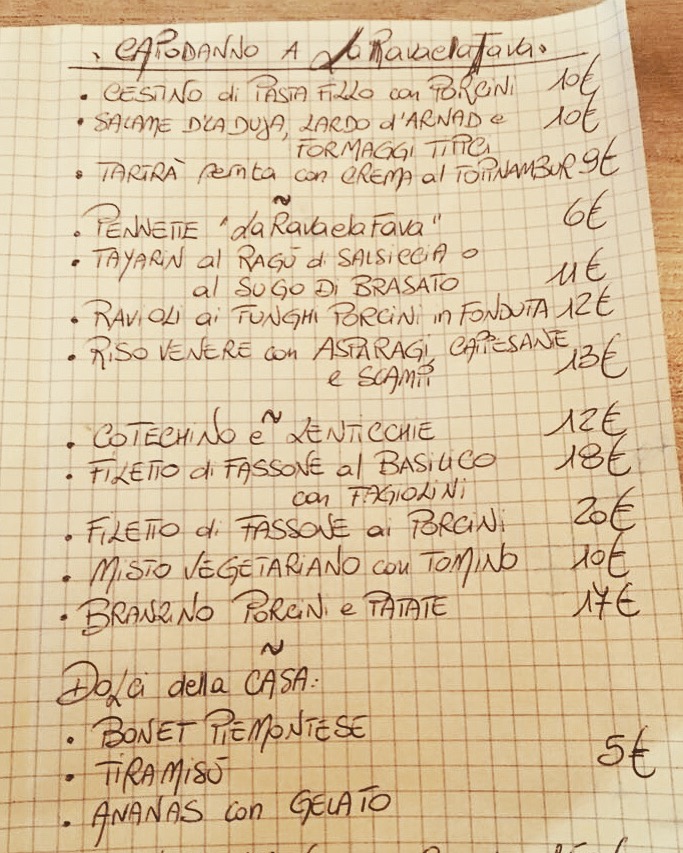 • CAPODANNO A LaRavaelaFava.
• CESTINO di PASTA FILLO con PORCINI 10€
• SALAME D'LA DUJA, LARDO d'ARNAD e 10€
FORMAGGI TIPICI
• TARTRÀ con CREMA al TOPINAMBUR 9€
~
• PENNETTE "LaRavaelaFava" 6€
• TAYARIN al RAGÙ di SALSICCIA o
al SUGO DI BRASATO 11€
• RAVIOLI ai FUNGHI PORCINI in FONDUTA 12€
• RISO VENERE con ASPARAGI, CAPESANTE
e SCAMPI 13€
~
• COTECHINO e LENTICCHIE 12€
• FILETTO di FASSONE al BASILICO 18€
con FAGIOLINI
• FILETTO di FASSONE ai PORCINI 20€
• MISTO VEGETARIANO con TOMINO 10€
• BRANZINO PORCINI e PATATE 17€
~
DOLCI della CASA:
• BONET PIEMONTESE
• TIRAMISÙ 5€
• ANANAS con GELATO